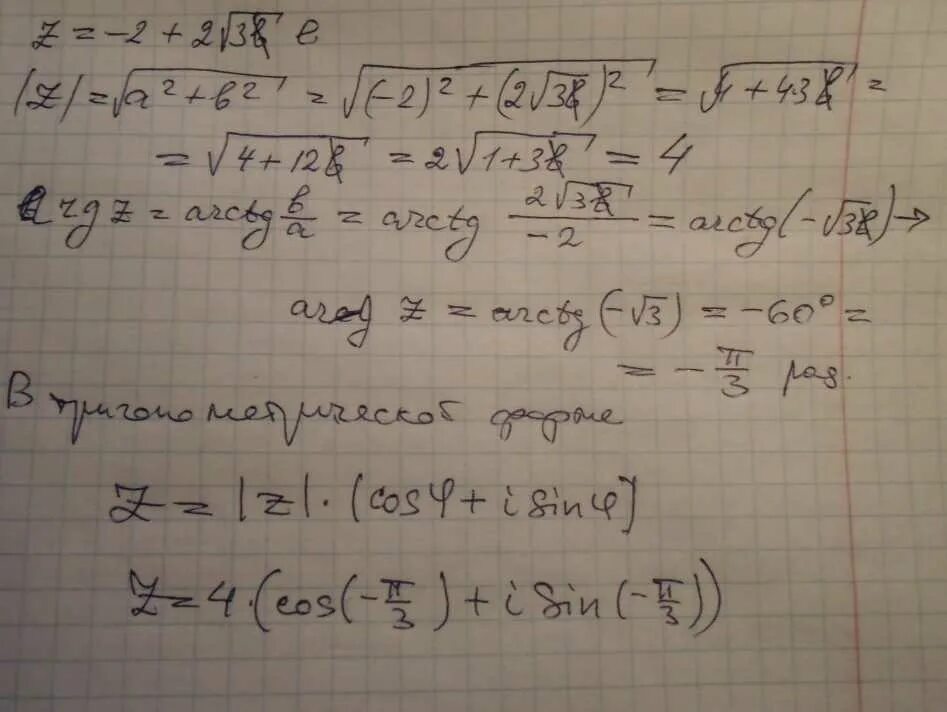 z = -2 + 2√3 i
|z| = √(a² + b²) = √((-2)² + (2√3)²) = √(4 + 4·3) =
= √(4 + 12) = 2√(1 + 3) = 4
arg z = arctg b/a = arctg 2√3/-2 = arctg(-√3) →
arg z = arctg(-√3) = -60° =
= -π/3 рад.
В тригонометрической форме
z = |z| · (cos φ + i sin φ)
z = 4 · (cos(-π/3) + i sin(-π/3))